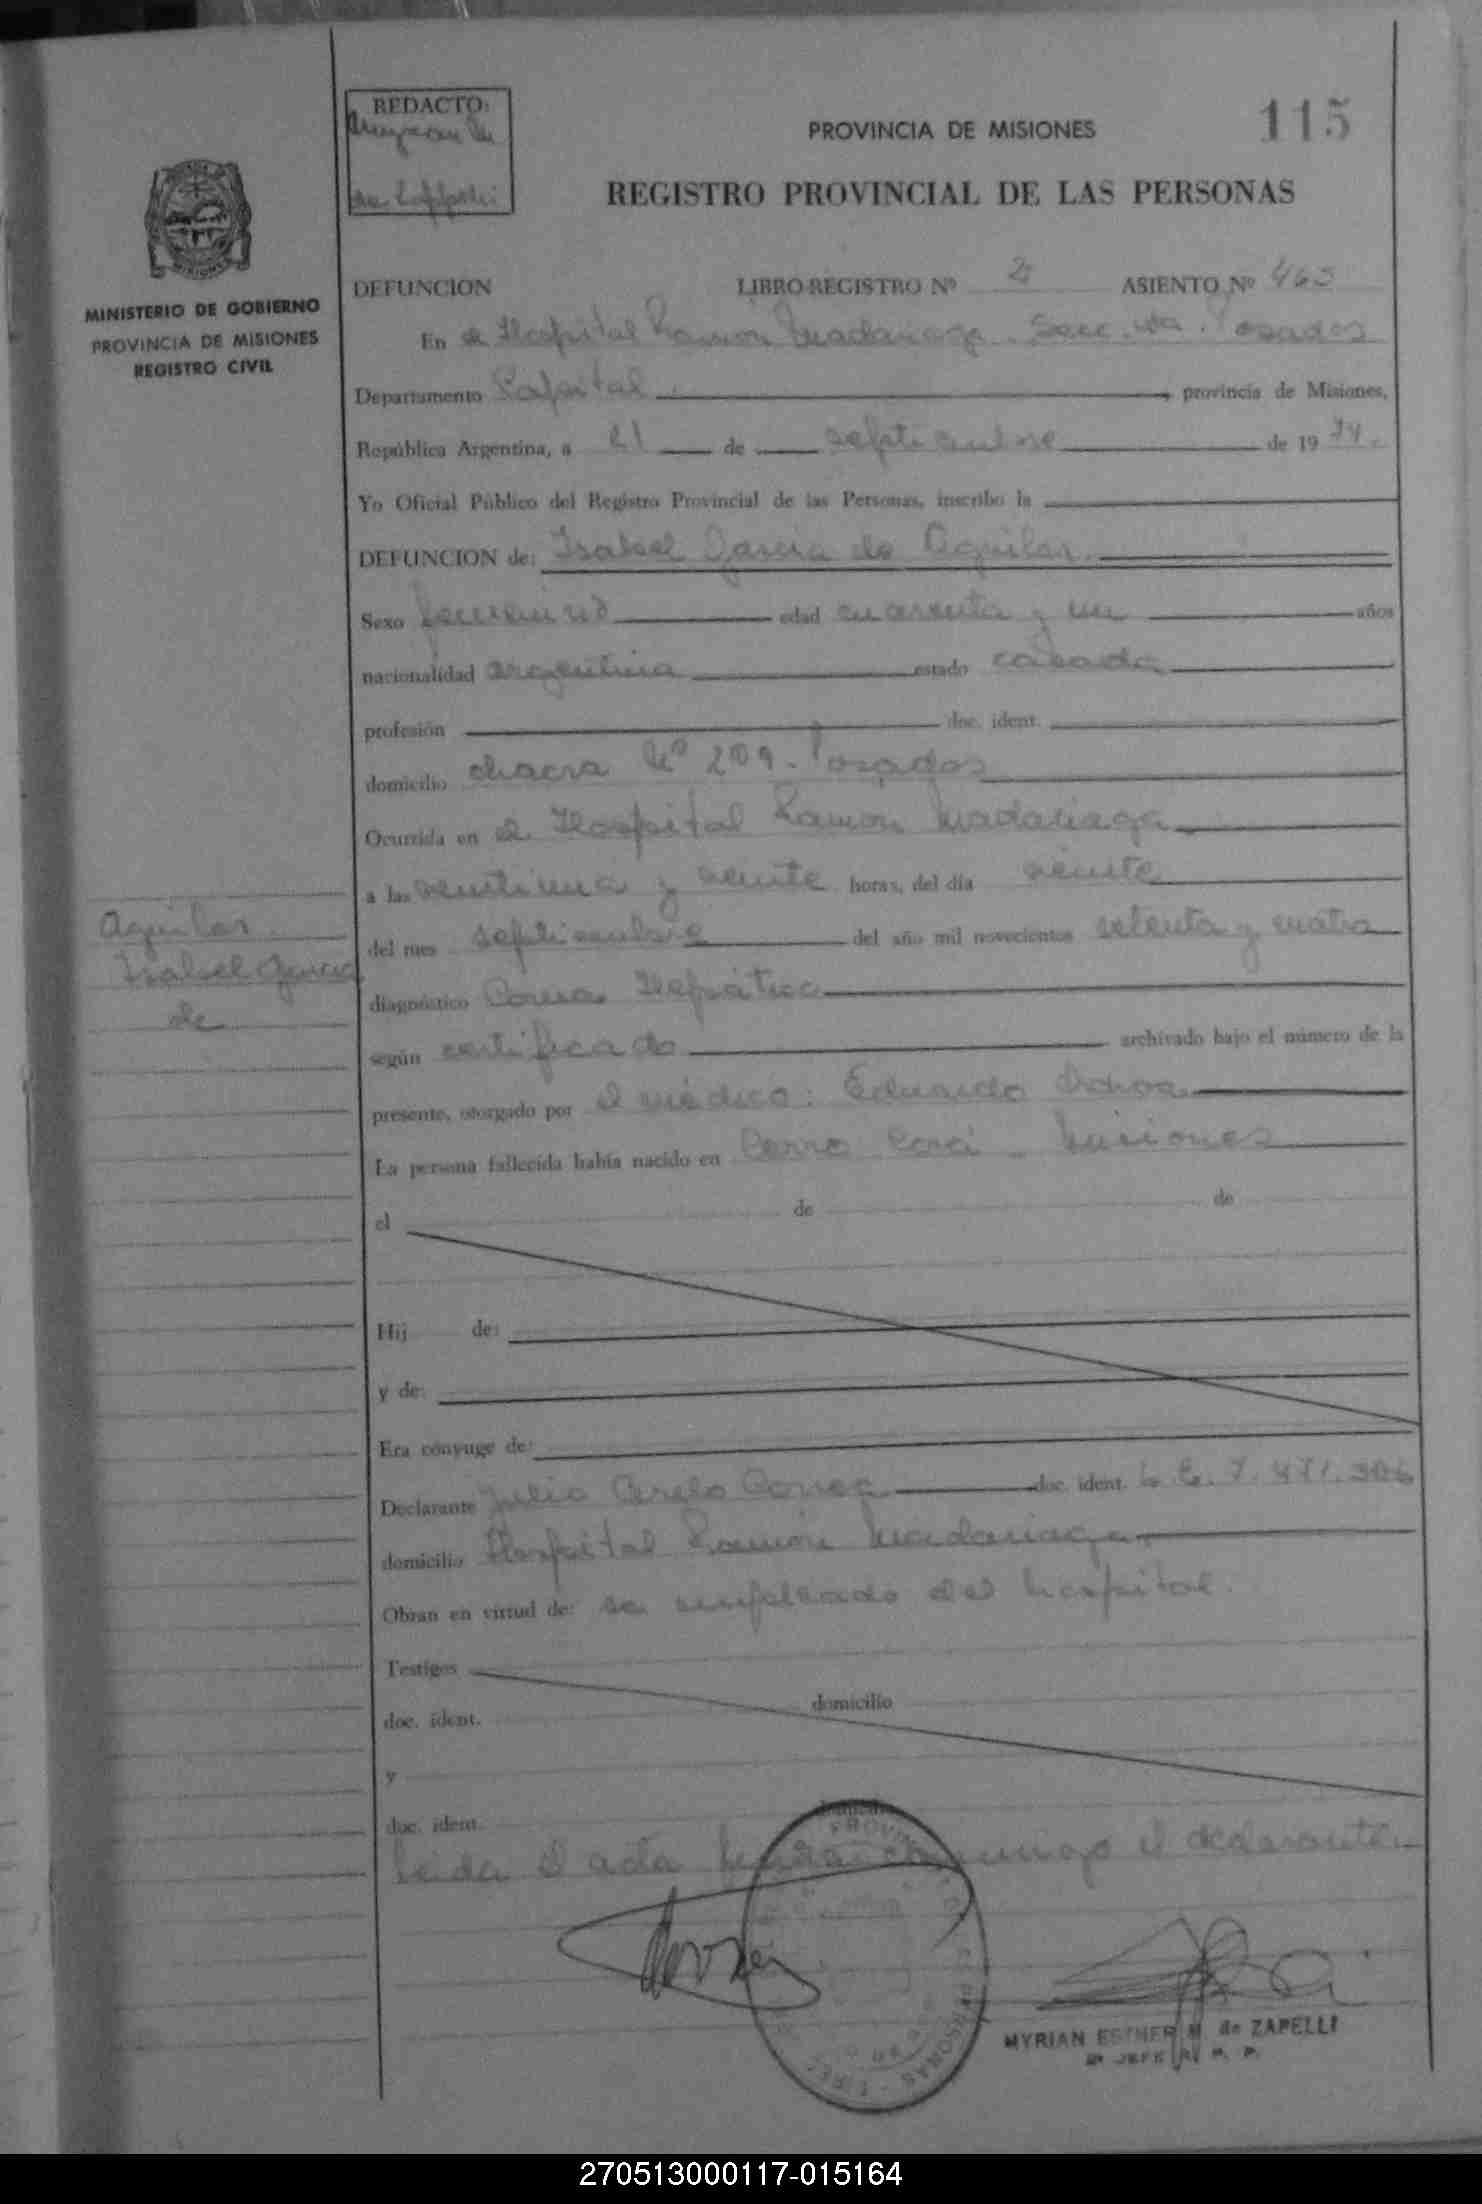 115
REDACTO:
PROVINCIA DE MISIONES
REGISTRO PROVINCIAL DE LAS PERSONAS
MINISTERIO DE GOBIERNO
PROVINCIA DE MISIONES
REGISTRO CIVIL
DEFUNCION LIBRO-REGISTRO Nº 2 ASIENTO Nº
En el Hospital Ramón Madariaga. Secc. Posadas
Departamento Capital provincia de Misiones,
República Argentina, a 21 de septiembre de 1974.
Yo Oficial Público del Registro Provincial de las Personas, inscribo la
DEFUNCION de: Isabel Garcia de Aguilar
Sexo femenino edad cuarenta y un años
nacionalidad argentina estado casada
profesión doc. ident.
domicilio chacra Nº 209. Posadas
Ocurrida en el Hospital Ramón Madariaga
a las veintiuna y veinte horas, del día veinte
del mes septiembre del año mil novecientos setenta y cuatro
diagnóstico Coma Hepático
según certificado archivado bajo el número de la
presente, otorgado por el médico: Eduardo
La persona fallecida había nacido en Cerro Corá - Misiones
el de de
Hij de:
y de:
Era cónyuge de:
Declarante Julio Correa doc. ident. L.E. 7.471.
domicilio Hospital Ramón Madariaga
Obran en virtud de: ser empleado del hospital.
Testigos
doc. ident. domicilio
y
doc. ident.
Leida el acta firma conmigo el declarante.
Aguilar
Isabel Garcia
de
MYRIAN ESTHER M. de ZAPELLI
270513000117-015164